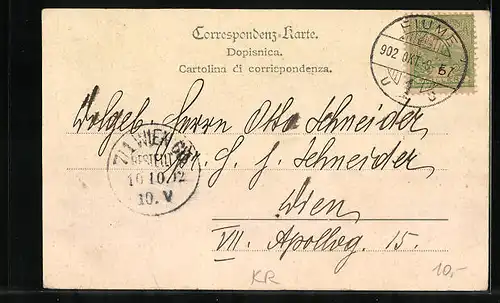 Correspondenz-Karte.
Dopisnica.
Cartolina di corrispondenza.
FIUME
902 OKT
Wolgeb. Herrn Otto Schneider
7/1 WIEN
BESTELLT
10.10.02
10.V
Schneider
Wien
VII. Apollog. 15.
KR
10,-